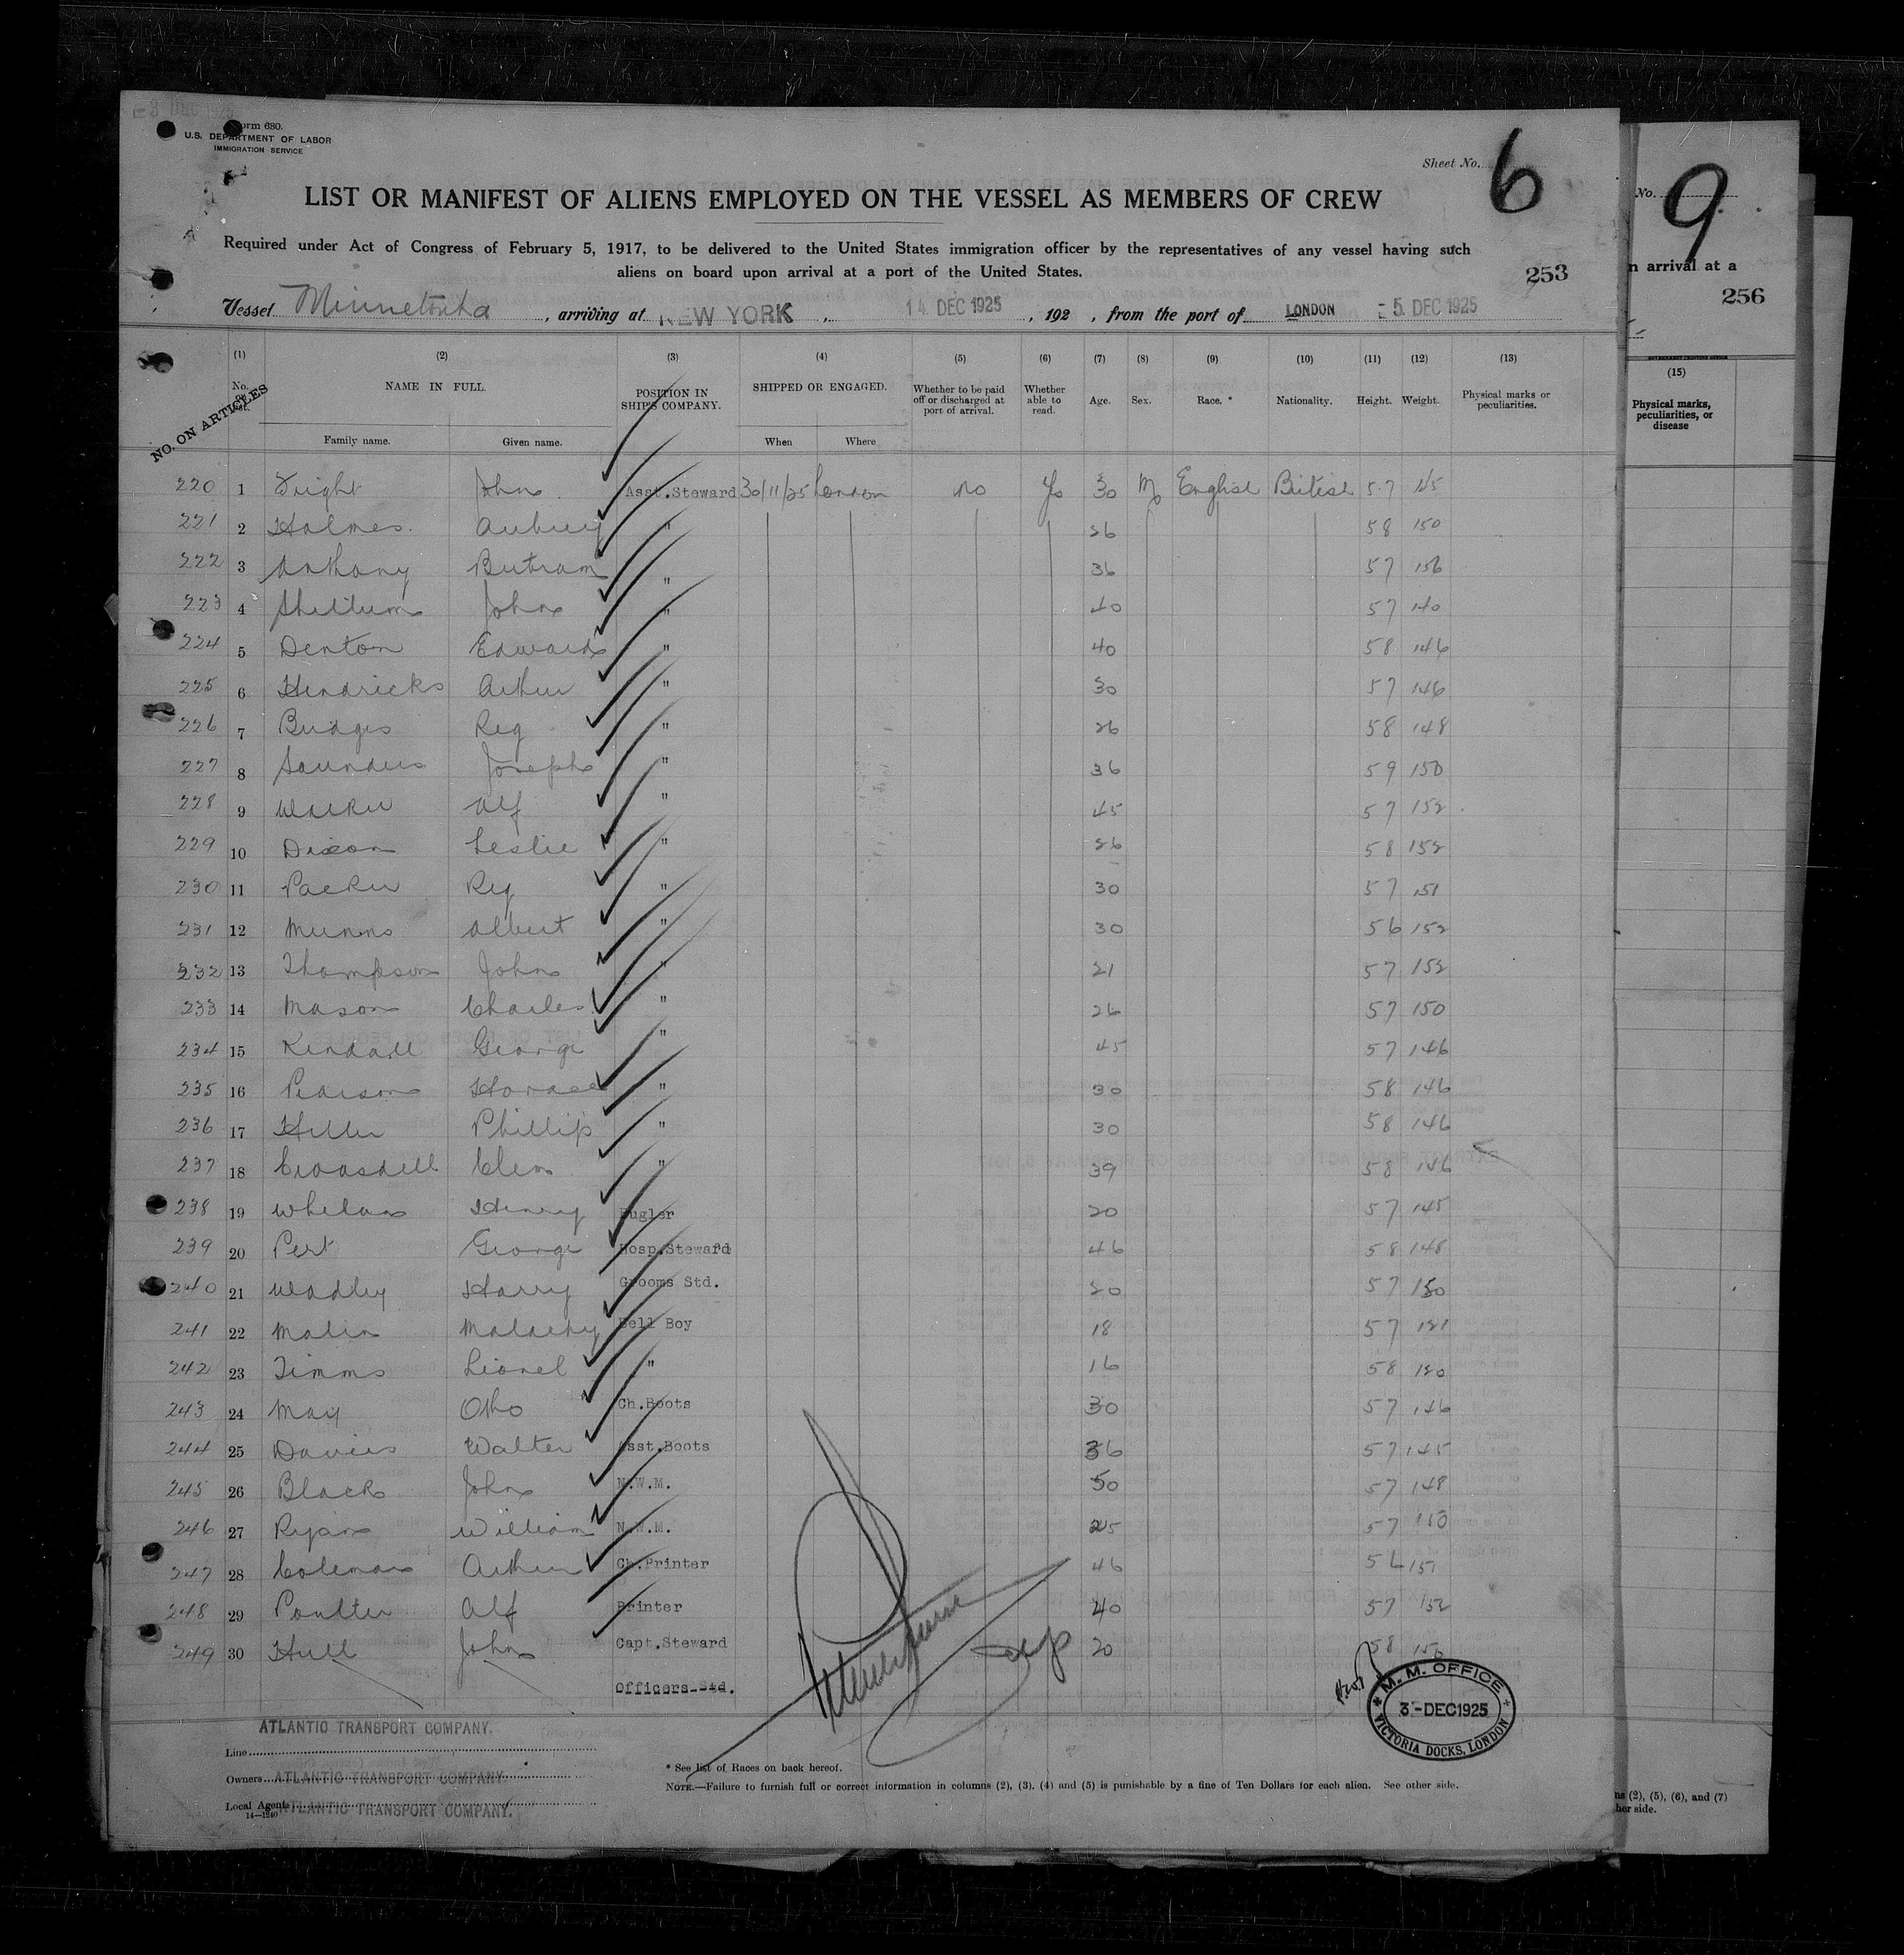 Form 680.
U.S. DEPARTMENT OF LABOR
IMMIGRATION SERVICE
Sheet No. 6
LIST OR MANIFEST OF ALIENS EMPLOYED ON THE VESSEL AS MEMBERS OF CREW
Required under Act of Congress of February 5, 1917, to be delivered to the United States immigration officer by the representatives of any vessel having such
aliens on board upon arrival at a port of the United States.
253
Vessel Minnetonka, arriving at NEW YORK, 14 DEC 1925, 192 , from the port of LONDON 5 DEC 1925
(1) (2) (3) (4) (5) (6) (7) (8) (9) (10) (11) (12) (13)
NO. ON ARTICLES No. NAME IN FULL. POSITION IN SHIP'S COMPANY. SHIPPED OR ENGAGED. Whether to be paid off or discharged at port of arrival. Whether able to read. Age. Sex. Race.* Nationality. Height. Weight. Physical marks or peculiarities.
Family name. Given name. When Where
220 1 Wright John Asst.Steward 30/11/25 London no Ys 30 M English British 57 145
221 2 Holmes Aubrey " 26 58 150
222 3 Anthony Bertram " 36 57 156
223 4 John " 40 57 140
224 5 Denton Edward " 40 58 146
225 6 Hendricks Arthur " 30 57 146
226 7 Bridges Reg " 26 58 148
227 8 Saunders Joseph " 36 59 150
228 9 Walker Alf " 45 57 152
229 10 Dixon Leslie " 26 58 152
230 11 Packer Reg " 30 57 151
231 12 Munns Albert " 30 56 152
232 13 Thompson John " 21 57 152
233 14 Mason Charles " 26 57 150
234 15 Kendall George " 45 57 146
235 16 Pearson Horace " 30 58 146
236 17 Hiller Phillip " 30 58 146
237 18 Croasdell Clem " 39 58 146
238 19 Whelan Henry Bugler 20 57 145
239 20 Pert George Hosp.Steward 46 58 148
240 21 Wadley Harry Grooms Std. 20 57 150
241 22 Malin Malachy Bell Boy 18 57 121
242 23 Timms Lionel " 16 58 120
243 24 May Otho Ch.Boots 30 57 146
244 25 Davies Walter Asst.Boots 36 57 145
245 26 Black John N.W.M. 50 57 148
246 27 Ryan William N.W.M. 25 57 150
247 28 Coleman Arthur Ch.Printer 46 56 151
248 29 Poulter Alf Printer 40 57 152
249 30 Hull John Capt.Steward 20 58 150
Officers Std.
M. M. OFFICE
3-DEC1925
VICTORIA DOCKS, LONDON
ATLANTIC TRANSPORT COMPANY.
Line
Owners ATLANTIC TRANSPORT COMPANY.
Local Agents ATLANTIC TRANSPORT COMPANY.
14—1240
* See list of Races on back hereof.
NOTE.—Failure to furnish full or correct information in columns (2), (3), (4) and (5) is punishable by a fine of Ten Dollars for each alien. See other side.
No. 9
n arrival at a
256
(15)
Physical marks,
peculiarities, or
disease
ns (2), (5), (6), and (7)
her side.